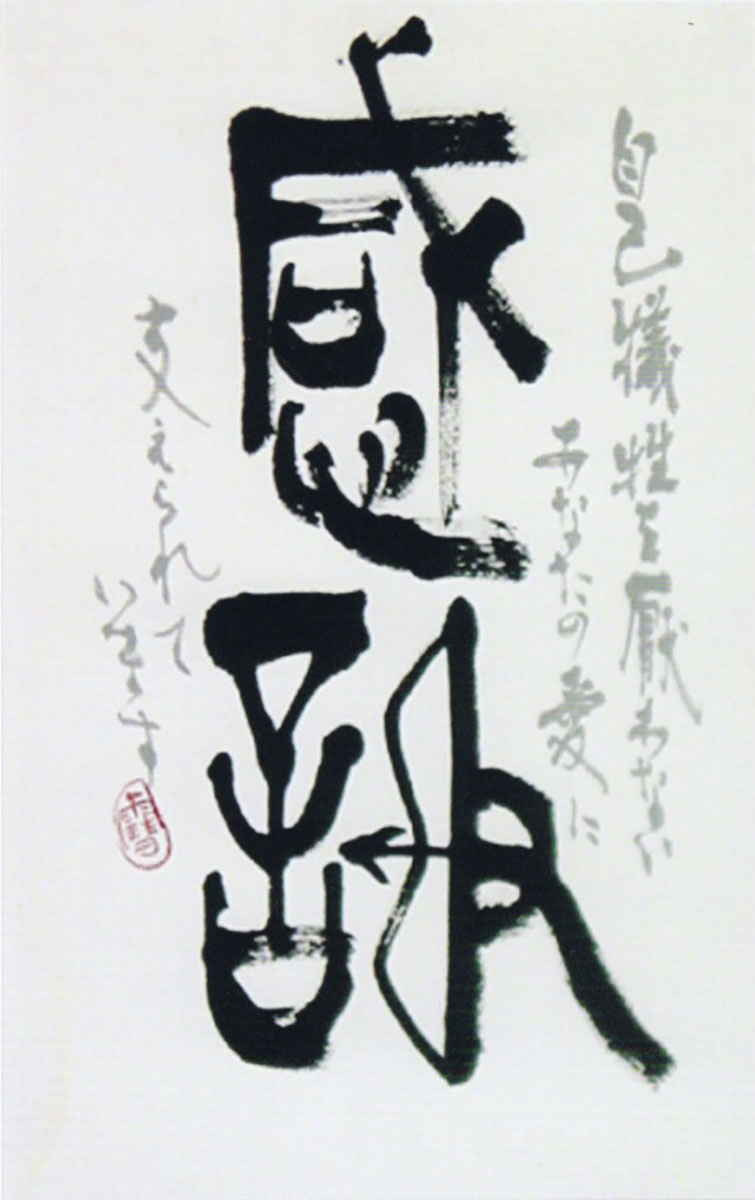 自己犠牲を厭わない
あなたの愛に
感謝
支えられて
います